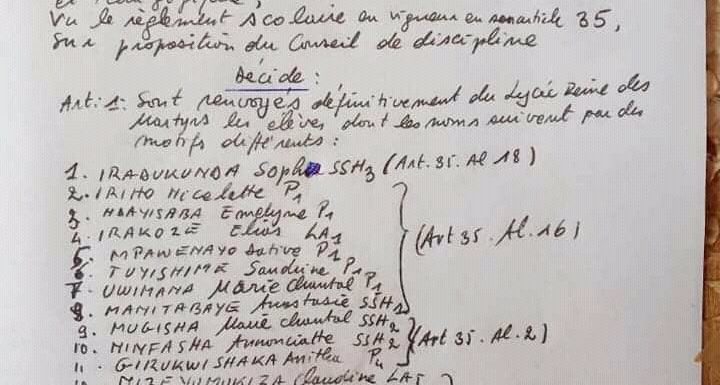 Vu le règlement scolaire en vigueur en son article 35,
Sur proposition du Conseil de discipline
Décide :
Art. 1: Sont renvoyés définitivement du Lycée Reine des
Martyrs les élèves dont les noms suivent par des
motifs différents :
1. IRADUKUNDA Sophie SSH3 (Art. 35. Al 18)
2. IRIHO Nicelatte P1
3. NDAYISABA Emelyne P1
4. IRAKOZE Elios LA1
5. MPAWENAYO Dative P1
6. TUYISHIME Sandrine P1
7. UWIMANA Marie Chantal P1
(Art 35. Al. 16)
8. MANITABAYE Anastasie SSH1
9. MUGISHA Marie Chantal SSH2
10. NINFASHA Annonciatte SSH2 (Art 35. Al. 2)
11. GIRUKWISHAKA Anitha P4
Claudine LA5